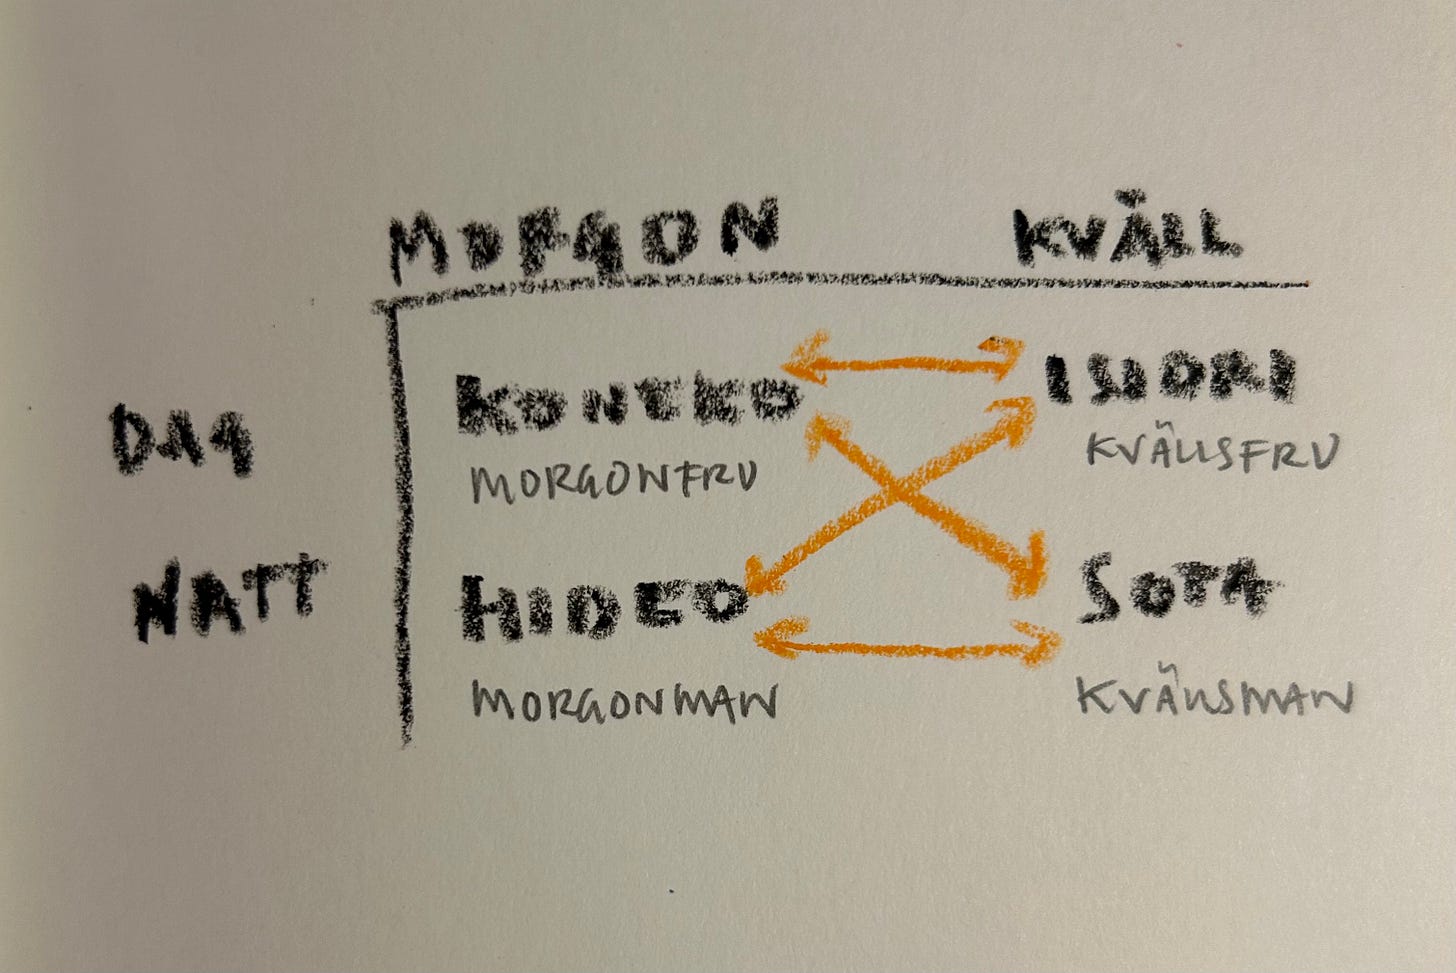 MORGON KVÄLL
DAG
KONEKO ISIORI
MORGONFRU KVÄLLSFRU
NATT
HIDEO SOTA
MORGONMAN KVÄLLSMAN